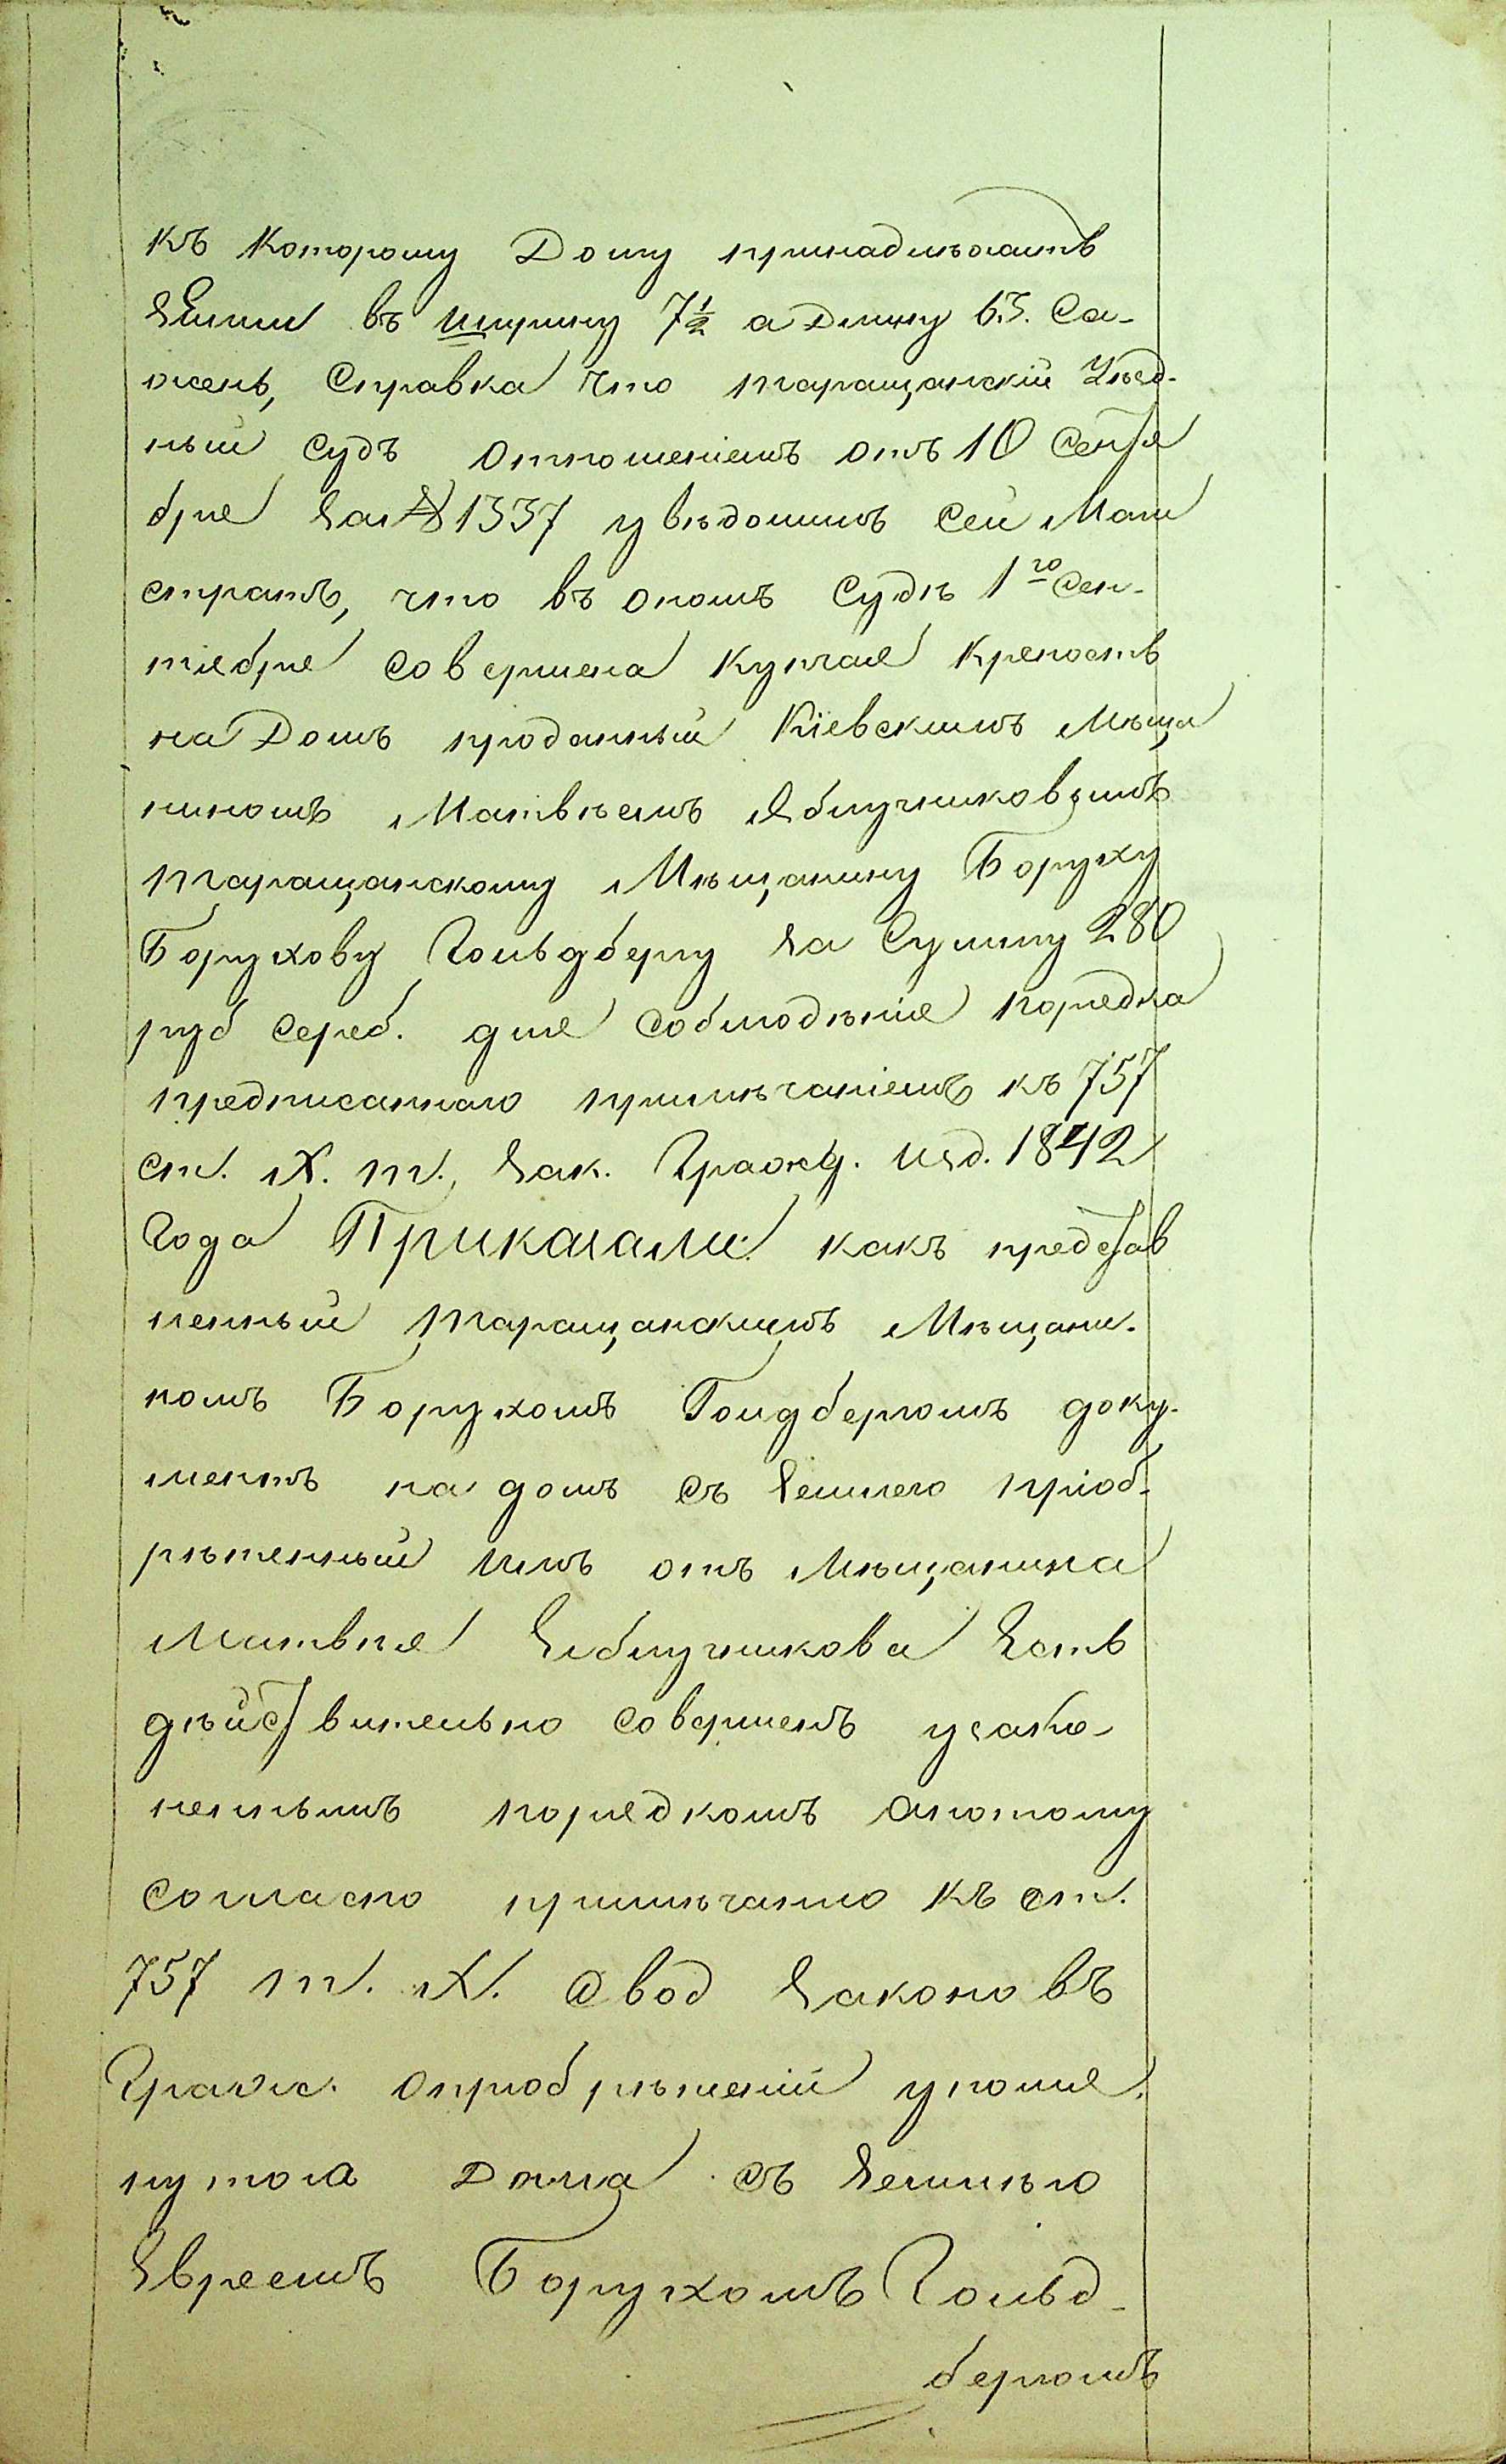 къ Которому Дому принадлѣжатъ
Земли въ ширину 7½ а Длину 63. Са-
жень, Справка Что таращанскій Уѣзд-
ный судъ отношеніемъ отъ 10 Сентя
бря За № 1337 увѣдомилъ Сей Маги
стратъ, что въ ономъ Судѣ 1го Сен-
тября совершена Купчая Крепость
на Домъ проданный Кіевскимъ Мѣща
ниномъ Матвѣемъ Яблучниковымъ
таращанскому Мѣщанину Боруху
Борухову Гольдбергу За Сумму 280
руб Сереб. для Соблюдѣнія порядка
предписаннаго примѣчаніемъ къ 757
ст. IX. т. Зак. Гражд. изд. 1842
Года Приказали: какъ представ
ленный таращанскимъ Мѣщани-
номъ Борухомъ Голдбергомъ доку-
ментъ на домъ съ Землею пріоб-
рѣтенный имъ отъ Мѣщанина
Матвѣя Яблучникова Есть
дѣйствительно совершенъ узако-
неннымъ порядкомъ апотому
согласно примѣчанію Къ ст.
757 т. IX. Свод Законовъ
Гражд. опріобрѣтеній упомя-
нутога Дома съ Землѣю
Евреемъ Борухомъ Гольд-
бергомъ